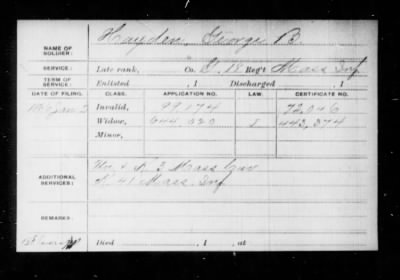 NAME OF SOLDIER: Hayden, George B.
SERVICE: Late rank, Co. 18 Reg't Mass Inf
TERM OF SERVICE: Enlisted , 1 Discharged , 1
DATE OF FILING. CLASS. APPLICATION NO. LAW. CERTIFICATE NO.
Jan 2 Invalid, 99174 72,046
Widow, 644 020 443,374
Minor,
ADDITIONAL SERVICES: 3 Mass Cav
41 Mass Inf
REMARKS:
Died , 1 , at